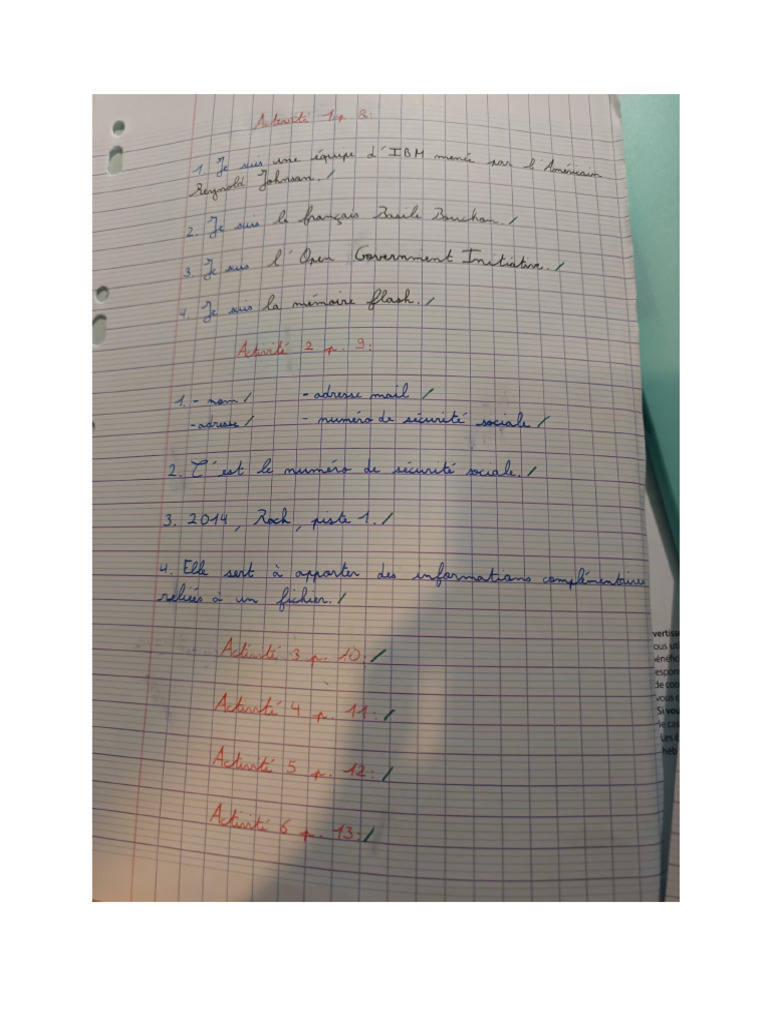 Activité 1 p 8:
1. Je suis une équipe d'IBM menée par l'Américain
Reynold Johnson. /
2. Je suis le français Basile Bouchon. /
3. Je suis l'Open Government Initiative. /
4. Je suis la mémoire flash. /
Activité 2 p. 9:
1. - nom / - adresse mail /
- adresse / - numéro de sécurité sociale /
2. C'est le numéro de sécurité sociale. /
3. 2014, Rock, piste 1. /
4. Elle sert à apporter des informations complémentaires
reliées à un fichier. /
Activité 3 p. 10: /
Activité 4 p. 11: /
Activité 5 p. 12: /
Activité 6 p. 13: /
vertiss
ous uti
énéfic
espon
de coo
vous c
Si vou
le cas
Les é
héb